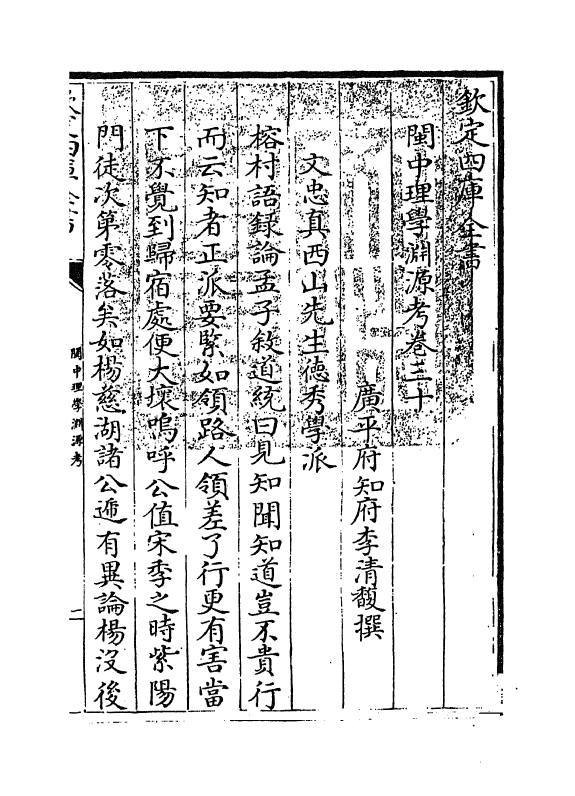 欽定四庫全書
閩中理學淵源考卷三十
廣平府知府李清馥撰
文忠真西山先生德秀學派
榕村語録論孟子敘道統曰見知聞知道豈不貴行
而云知者正派要緊如領路人領差了行更有害當
下不覺到歸宿處便大壞嗚呼公值宋季之時紫陽
門徒次第零落矣如楊慈湖諸公遞有異論楊沒後
閩中理學淵源考